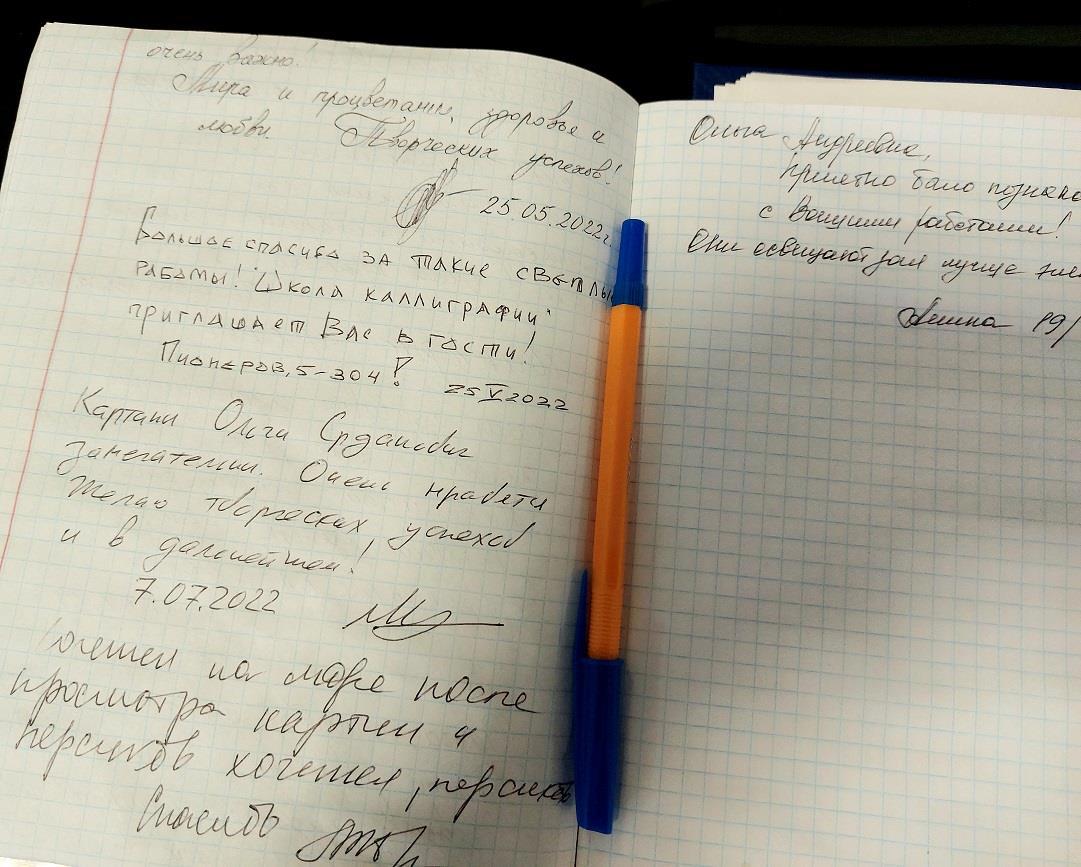 очень важно!
Мира и процветания, здоровья и
любви. Творческих успехов!
25.05.2022г.
Большое спасибо за такие светлы
работы! Школа каллиграфии
приглашает Вас в гости!
Пионеров, 5-304! 25 V 2022
Картины Ольги
замечательны. Очень нравятся
Желаю творческих успехов
и в дальнейшем!
7.07.2022
хочется на море после
просмотра картин и
персиков хочется, персиков
Спасибо
Ольга Андреевна,
приятно было познако
с Вашими работами!
Они освещают зал лучше
19/